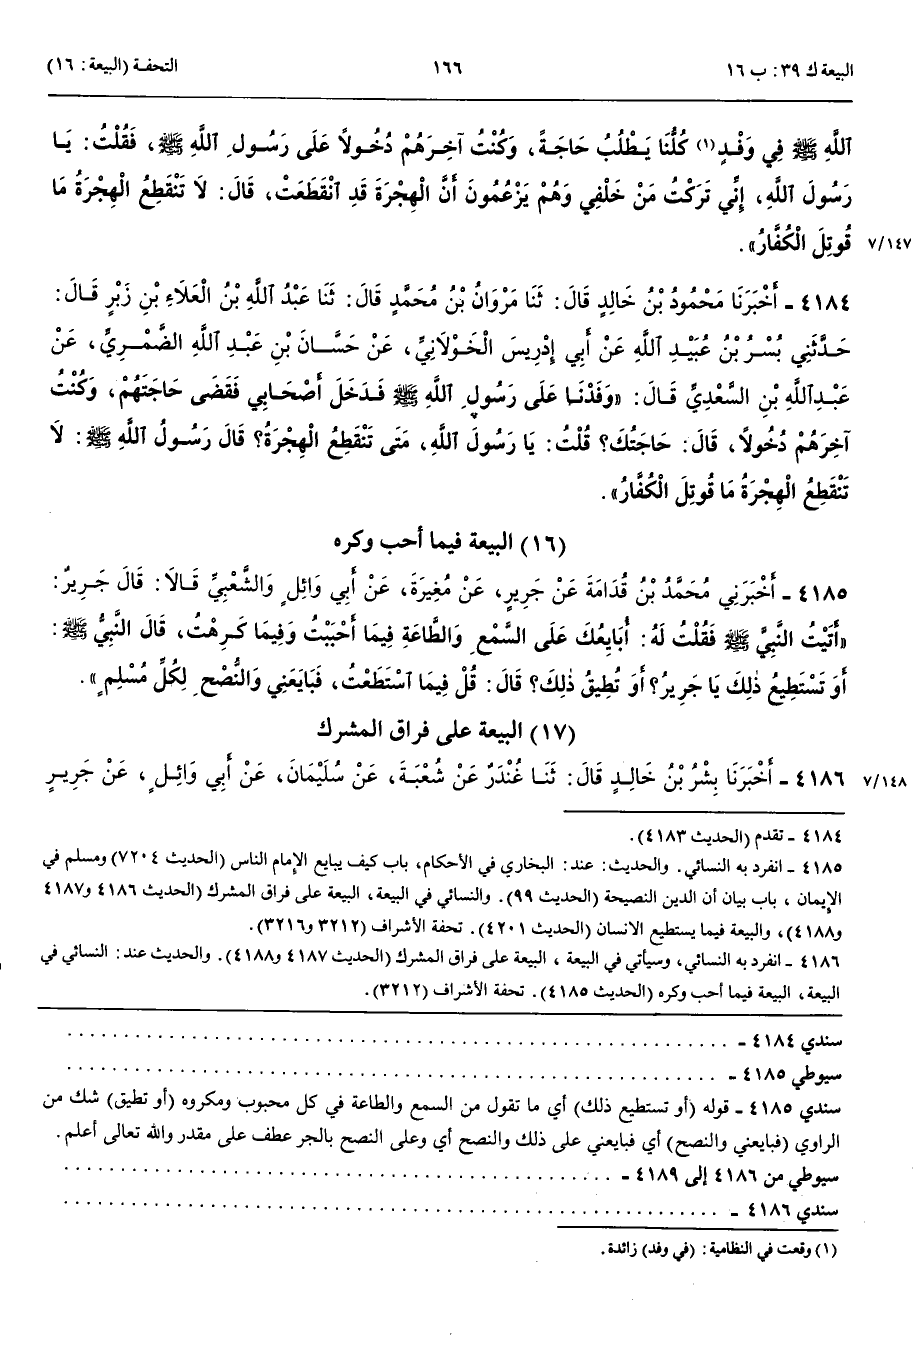 البيعة ك ٣٩: ب ١٦
١٦٦
التحفة (البيعة: ١٦)
ٱللَّهِ ﷺ فِي وَفْدٍ(١) كُلُّنَا يَطْلُبُ حَاجَةً، وَكُنْتُ آخِرَهُمْ دُخُولاً عَلَى رَسُولِ ٱللَّهِ ﷺ، فَقُلْتُ: يَا
رَسُولَ ٱللَّهِ، إِنِّي تَرَكْتُ مَنْ خَلْفِي وَهُمْ يَزْعُمُونَ أَنَّ الْهِجْرَةَ قَدِ ٱنْقَطَعَتْ، قَالَ: لَا تَنْقَطِعُ الْهِجْرَةُ مَا
٧/١٤٧ قُوتِلَ الْكُفَّارُ».
٤١٨٤ - أَخْبَرَنَا مَحْمُودُ بْنُ خَالِدٍ قَالَ: ثَنَا مَرْوَانُ بْنُ مُحَمَّدٍ قَالَ: ثَنَا عَبْدُ ٱللَّهِ بْنُ الْعَلَاءِ بْنِ زَبْرٍ قَالَ:
حَدَّثَنِي بُسْرُ بْنُ عُبَيْدِ ٱللَّهِ عَنْ أَبِي إِدْرِيسَ الْخَوْلَانِيِّ، عَنْ حَسَّانَ بْنِ عَبْدِ ٱللَّهِ الضَّمْرِيِّ، عَنْ
عَبْدِٱللَّهِ بْنِ السَّعْدِيِّ قَالَ: «وَفَدْنَا عَلَى رَسُولِ ٱللَّهِ ﷺ فَدَخَلَ أَصْحَابِي فَقَضَى حَاجَتَهُمْ، وَكُنْتُ
آخِرَهُمْ دُخُولاً، قَالَ: حَاجَتُكَ؟ قُلْتُ: يَا رَسُولَ ٱللَّهِ، مَتَى تَنْقَطِعُ الْهِجْرَةُ؟ قَالَ رَسُولُ ٱللَّهِ ﷺ: لَا
تَنْقَطِعُ الْهِجْرَةُ مَا قُوتِلَ الْكُفَّارُ».
(١٦) البيعة فيما أحب وكره
٤١٨٥ - أَخْبَرَنِي مُحَمَّدُ بْنُ قُدَامَةَ عَنْ جَرِيرٍ، عَنْ مُغِيرَةَ، عَنْ أَبِي وَائِلٍ وَالشَّعْبِيِّ قَالَا: قَالَ جَرِيرٌ:
«أَتَيْتُ النَّبِيَّ ﷺ فَقُلْتُ لَهُ: أُبَايِعُكَ عَلَى السَّمْعِ وَالطَّاعَةِ فِيمَا أَحْبَبْتُ وَفِيمَا كَرِهْتُ، قَالَ النَّبِيُّ ﷺ:
أَوَ تَسْتَطِيعُ ذٰلِكَ يَا جَرِيرُ؟ أَوَ تُطِيقُ ذٰلِكَ؟ قَالَ: قُلْ فِيمَا ٱسْتَطَعْتُ، فَبَايَعَنِي وَالنُّصْحِ لِكُلِّ مُسْلِمٍ».
(١٧) البيعة على فراق المشرك
٧/١٤٨ ٤١٨٦ - أَخْبَرَنَا بِشْرُ بْنُ خَالِدٍ قَالَ: ثَنَا غُنْدَرٌ عَنْ شُعْبَةَ، عَنْ سُلَيْمَانَ، عَنْ أَبِي وَائِلٍ، عَنْ جَرِيرٍ
٤١٨٤ - تقدم (الحديث ٤١٨٣).
٤١٨٥ - انفرد به النسائي. والحديث: عند: البخاري في الأحكام، باب كيف يبايع الإمام الناس (الحديث ٧٢٠٤) ومسلم في
الإيمان، باب بيان أن الدين النصيحة (الحديث ٩٩). والنسائي في البيعة، البيعة على فراق المشرك (الحديث ٤١٨٦ و٤١٨٧
و٤١٨٨)، والبيعة فيما يستطيع الانسان (الحديث ٤٢٠١). تحفة الأشراف (٣٢١٢ و٣٢١٦).
٤١٨٦ - انفرد به النسائي، وسيأتي في البيعة، البيعة على فراق المشرك (الحديث ٤١٨٧ و٤١٨٨). والحديث عند: النسائي في
البيعة، البيعة فيما أحب وكره (الحديث ٤١٨٥). تحفة الأشراف (٣٢١٢).
سندي ٤١٨٤ - . . . . . . . . . . . . . . . . . . . .
سيوطي ٤١٨٥ - . . . . . . . . . . . . . . . . . . . .
سندي ٤١٨٥ - قوله (أو تستطيع ذلك) أي ما تقول من السمع والطاعة في كل محبوب ومكروه (أو تطيق) شك من
الراوي (فبايعني والنصح) أي فبايعني على ذلك والنصح أي وعلى النصح بالجر عطف على مقدر والله تعالى أعلم.
سيوطي من ٤١٨٦ إلى ٤١٨٩ - . . . . . . . . . . . . . . . . . . . .
سندي ٤١٨٦ - . . . . . . . . . . . . . . . . . . . .
(١) وقعت في النظامية: (في وفد) زائدة.